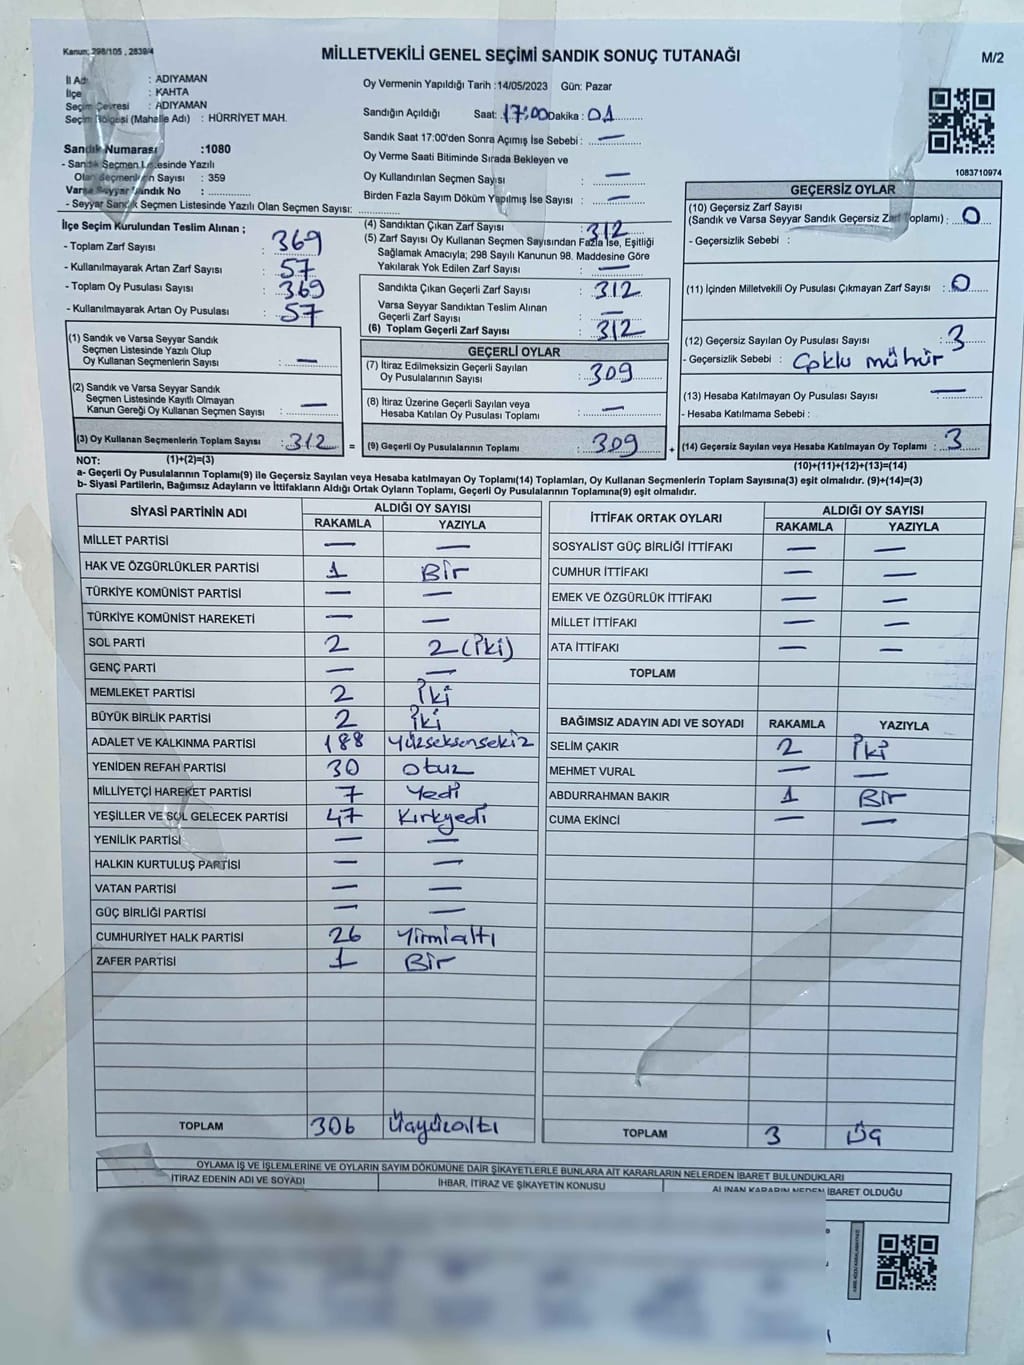 Kanun; 298/105 , 2839/4
MİLLETVEKİLİ GENEL SEÇİMİ SANDIK SONUÇ TUTANAĞI
M/2
İl Adı : ADIYAMAN
İlçe : KAHTA
Seçim Çevresi : ADIYAMAN
Seçim Bölgesi (Mahalle Adı) : HÜRRİYET MAH.
Sandık Numarası :1080
- Sandık Seçmen Listesinde Yazılı
Olan Seçmenlerin Sayısı : 359
Varsa Seyyar Sandık No :
- Seyyar Sandık Seçmen Listesinde Yazılı Olan Seçmen Sayısı:
Oy Vermenin Yapıldığı Tarih :14/05/2023 Gün: Pazar
Sandığın Açıldığı Saat: 17:00 Dakika : 01
Sandık Saat 17:00'den Sonra Açımış İse Sebebi : —
Oy Verme Saati Bitiminde Sırada Bekleyen ve
Oy Kullandırılan Seçmen Sayısı : —
Birden Fazla Sayım Döküm Yapılmış İse Sayısı : —
1083710974
İlçe Seçim Kurulundan Teslim Alınan ;
- Toplam Zarf Sayısı : 369
- Kullanılmayarak Artan Zarf Sayısı : 57
- Toplam Oy Pusulası Sayısı : 369
- Kullanılmayarak Artan Oy Pusulası : 57
(1) Sandık ve Varsa Seyyar Sandık
Seçmen Listesinde Yazılı Olup
Oy Kullanan Seçmenlerin Sayısı : —
(2) Sandık ve Varsa Seyyar Sandık
Seçmen Listesinde Kayıtlı Olmayan
Kanun Gereği Oy Kullanan Seçmen Sayısı : —
(3) Oy Kullanan Seçmenlerin Toplam Sayısı : 312 =
(1)+(2)=(3)
(4) Sandıktan Çıkan Zarf Sayısı : 312
(5) Zarf Sayısı Oy Kullanan Seçmen Sayısından Fazla İse, Eşitliği
Sağlamak Amacıyla; 298 Sayılı Kanunun 98. Maddesine Göre
Yakılarak Yok Edilen Zarf Sayısı : —
Sandıkta Çıkan Geçerli Zarf Sayısı : 312
Varsa Seyyar Sandıktan Teslim Alınan
Geçerli Zarf Sayısı : —
(6) Toplam Geçerli Zarf Sayısı : 312
GEÇERLİ OYLAR
(7) İtiraz Edilmeksizin Geçerli Sayılan
Oy Pusulalarının Sayısı : 309
(8) İtiraz Üzerine Geçerli Sayılan veya
Hesaba Katılan Oy Pusulası Toplamı : —
(9) Geçerli Oy Pusulalarının Toplamı : 309 +
GEÇERSİZ OYLAR
(10) Geçersiz Zarf Sayısı
(Sandık ve Varsa Seyyar Sandık Geçersiz Zarf Toplamı) : 0
- Geçersizlik Sebebi :
(11) İçinden Milletvekili Oy Pusulası Çıkmayan Zarf Sayısı : 0
(12) Geçersiz Sayılan Oy Pusulası Sayısı : 3
- Geçersizlik Sebebi : Çoklu mühür
(13) Hesaba Katılmayan Oy Pusulası Sayısı —
- Hesaba Katılmama Sebebi :
(14) Geçersiz Sayılan veya Hesaba Katılmayan Oy Toplamı : 3
(10)+(11)+(12)+(13)=(14)
NOT:
a- Geçerli Oy Pusulalarının Toplamı(9) ile Geçersiz Sayılan veya Hesaba katılmayan Oy Toplamı(14) Toplamları, Oy Kullanan Seçmenlerin Toplam Sayısına(3) eşit olmalıdır. (9)+(14)=(3)
b- Siyasi Partilerin, Bağımsız Adayların ve İttifakların Aldığı Ortak Oyların Toplamı, Geçerli Oy Pusulalarının Toplamına(9) eşit olmalıdır.
SİYASİ PARTİNİN ADI ALDIĞI OY SAYISI
RAKAMLA YAZIYLA
MİLLET PARTİSİ — —
HAK VE ÖZGÜRLÜKLER PARTİSİ 1 Bir
TÜRKİYE KOMÜNİST PARTİSİ — —
TÜRKİYE KOMÜNİST HAREKETİ — —
SOL PARTİ 2 2 (iki)
GENÇ PARTİ — —
MEMLEKET PARTİSİ 2 İki
BÜYÜK BİRLİK PARTİSİ 2 İki
ADALET VE KALKINMA PARTİSİ 188 Yüzseksensekiz
YENİDEN REFAH PARTİSİ 30 otuz
MİLLİYETÇİ HAREKET PARTİSİ 7 Yedi
YEŞİLLER VE SOL GELECEK PARTİSİ 47 Kırkyedi
YENİLİK PARTİSİ — —
HALKIN KURTULUŞ PARTİSİ — —
VATAN PARTİSİ — —
GÜÇ BİRLİĞİ PARTİSİ — —
CUMHURİYET HALK PARTİSİ 26 Yirmialtı
ZAFER PARTİSİ 1 Bir
TOPLAM 306 Üçyüzaltı
İTTİFAK ORTAK OYLARI ALDIĞI OY SAYISI
RAKAMLA YAZIYLA
SOSYALİST GÜÇ BİRLİĞİ İTTİFAKI — —
CUMHUR İTTİFAKI — —
EMEK VE ÖZGÜRLÜK İTTİFAKI — —
MİLLET İTTİFAKI — —
ATA İTTİFAKI — —
TOPLAM
BAĞIMSIZ ADAYIN ADI VE SOYADI RAKAMLA YAZIYLA
SELİM ÇAKIR 2 İki
MEHMET VURAL — —
ABDURRAHMAN BAKIR 1 Bir
CUMA EKİNCİ — —
TOPLAM 3 Üç
OYLAMA İŞ VE İŞLEMLERİNE VE OYLARIN SAYIM DÖKÜMÜNE DAİR ŞİKAYETLERLE BUNLARA AİT KARARLARIN NELERDEN İBARET BULUNDUKLARI
İTİRAZ EDENİN ADI VE SOYADI İHBAR, İTİRAZ VE ŞİKAYETİN KONUSU ALINAN KARARIN NEDEN İBARET OLDUĞU